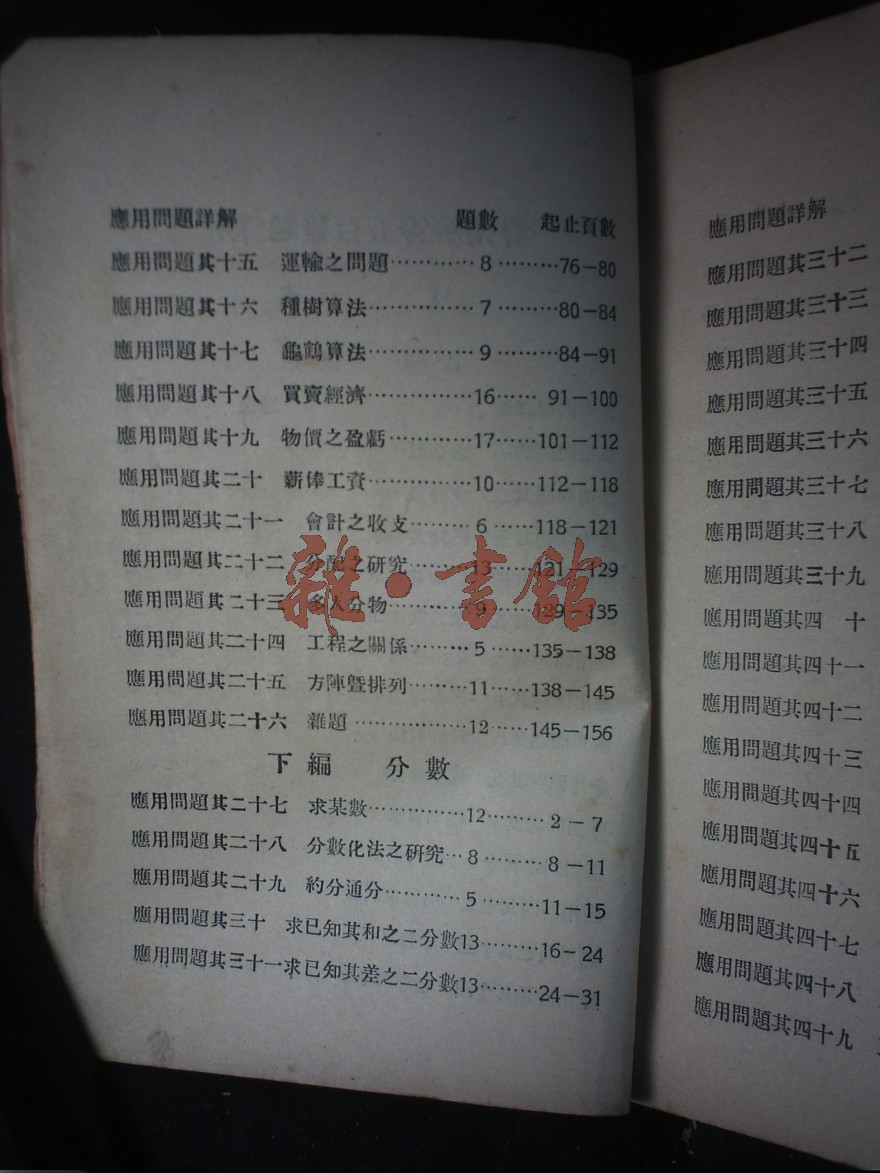 應用問題詳解 題數 起止頁數
應用問題其十五 運輸之問題············8·········76-80
應用問題其十六 種樹算法···············7·········80-84
應用問題其十七 龜鶴算法···············9·········84-91
應用問題其十八 買賣經濟···············16······91-100
應用問題其十九 物價之盈虧············17······101-112
應用問題其二十 薪俸工資···············10······112-118
應用問題其二十一 會計之收支·········6······118-121
應用問題其二十二 分配之研究·········13······121-129
應用問題其二十三 多人分物············9······129-135
應用問題其二十四 工程之關係·········5······135-138
應用問題其二十五 方陣暨排列·········11······138-145
應用問題其二十六 雜題···············12······145-156
下編 分數
應用問題其二十七 求某數···············12·········2-7
應用問題其二十八 分數化法之研究···8·········8-11
應用問題其二十九 約分通分············5·········11-15
應用問題其三十 求已知其和之二分數13·········16-24
應用問題其三十一求已知其差之二分數13·········24-31
雜·書館
應用問題詳解
應用問題其三十二
應用問題其三十三
應用問題其三十四
應用問題其三十五
應用問題其三十六
應用問題其三十七
應用問題其三十八
應用問題其三十九
應用問題其四 十
應用問題其四十一
應用問題其四十二
應用問題其四十三
應用問題其四十四
應用問題其四十五
應用問題其四十六
應用問題其四十七
應用問題其四十八
應用問題其四十九